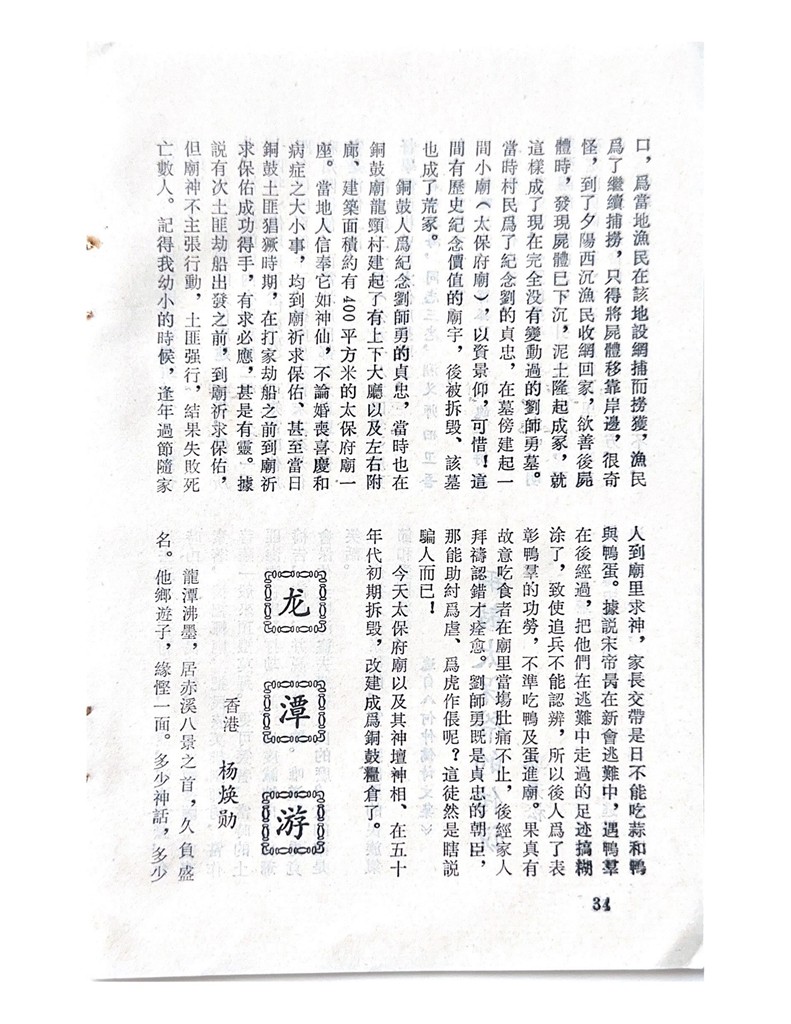 口，爲當地漁民在該地設網捕而撈獲，漁民
爲了繼續捕撈，只得將屍體移靠岸邊，很奇
怪，到了夕陽西沉漁民收網回家，欲善後屍
體時，發現屍體已下沉，泥土隆起成冢，就
這樣成了現在完全没有變動過的劉師勇墓。
當時村民爲了紀念劉的貞忠，在墓傍建起一
間小廟（太保府廟），以資景仰，可惜！這
間有歷史紀念價值的廟宇，後被拆毁、該墓
也成了荒冢。
銅鼓人爲紀念劉師勇的貞忠，當時也在
銅鼓廟龍頸村建起了有上下大廳以及左右附
廊、建築面積約有400平方米的太保府廟一
座。當地人信奉它如神仙，不論婚喪喜慶和
病症之大小事，均到廟祈求保佑、甚至當日
銅鼓土匪猖獗時期，在打家劫船之前到廟祈
求保佑成功得手，有求必應，甚是有靈。據
説有次土匪劫船出發之前，到廟祈求保佑，
但廟神不主張行動，土匪强行，結果失敗死
亡數人。記得我幼小的時候，逢年過節隨家
人到廟里求神，家長交帶是日不能吃蒜和鴨
與鴨蛋。據説宋帝昺在新會逃難中，遇鴨羣
在後經過，把他們在逃難中走過的足迹搞糊
涂了，致使追兵不能認辨，所以後人爲了表
彰鴨羣的功勞，不準吃鴨及蛋進廟。果真有
故意吃食者在廟里當塲肚痛不止，後經家人
拜禱認錯才痊愈。劉師勇既是貞忠的朝臣，
那能助紂爲虐、爲虎作倀呢？這徒然是瞎説
騙人而已！
今天太保府廟以及其神壇神相、在五十
年代初期拆毁，改建成爲銅鼓糧倉了。
龙潭游
香港 杨焕勋
龍潭沸墨，居赤溪八景之首，久負盛
名。他鄉遊子，緣慳一面。多少神話，多少
34